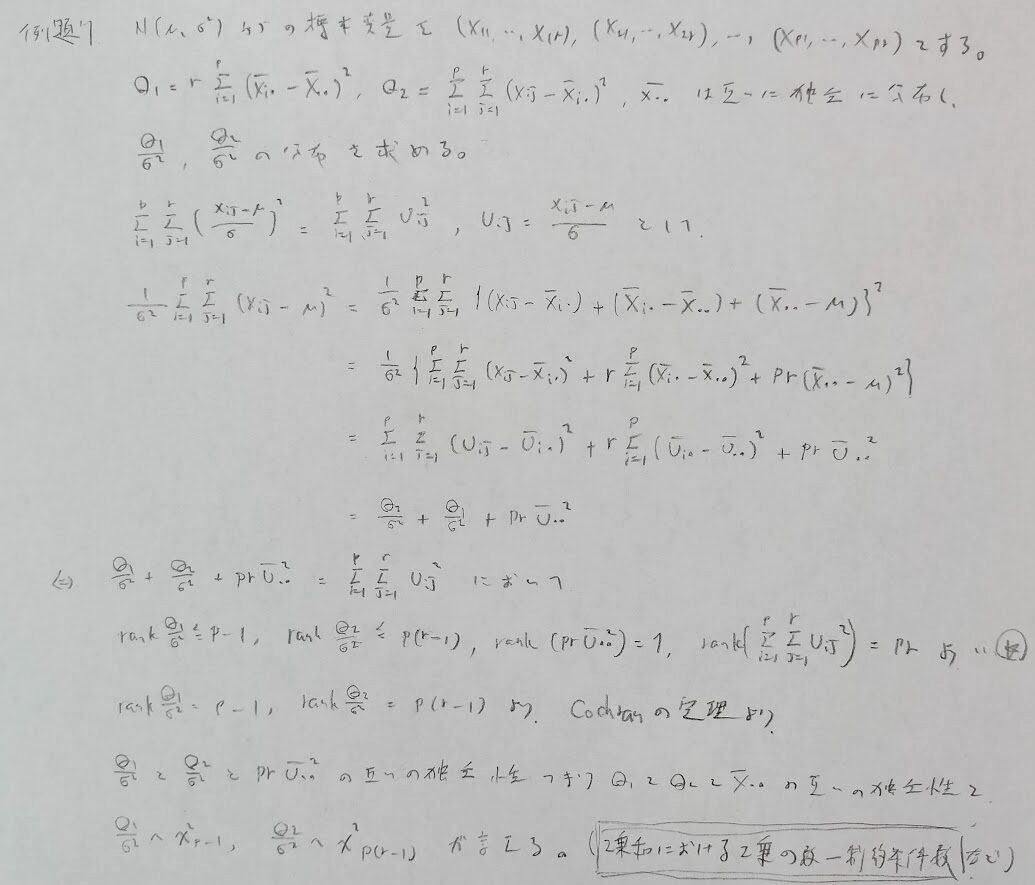 例題7 N(μ, σ²) からの標本変量を (X₁₁, …, X₁ᵣ), (X₂₁, …, X₂ᵣ), …, (Xₚ₁, …, Xₚᵣ) とする。
Q₁ = r Σ_{i=1}^{p} (X̄ᵢ. − X̄..)², Q₂ = Σ_{i=1}^{p} Σ_{j=1}^{r} (Xᵢⱼ − X̄ᵢ.)², X̄.. は互いに独立に分布し、
Q₁/σ², Q₂/σ² の分布を求める。
Σ_{i=1}^{p} Σ_{j=1}^{r} ((Xᵢⱼ − μ)/σ)² = Σ_{i=1}^{p} Σ_{j=1}^{r} Uᵢⱼ², Uᵢⱼ = (Xᵢⱼ − μ)/σ として.
1/σ² Σ_{i=1}^{p} Σ_{j=1}^{r} (Xᵢⱼ − μ)² = 1/σ² Σ_{i=1}^{p} Σ_{j=1}^{r} {(Xᵢⱼ − X̄ᵢ.) + (X̄ᵢ. − X̄..) + (X̄.. − μ)}²
= 1/σ² {Σ_{i=1}^{p} Σ_{j=1}^{r} (Xᵢⱼ − X̄ᵢ.)² + r Σ_{i=1}^{p} (X̄ᵢ. − X̄..)² + pr (X̄.. − μ)²}
= Σ_{i=1}^{p} Σ_{j=1}^{r} (Uᵢⱼ − Ūᵢ.)² + r Σ_{i=1}^{p} (Ūᵢ. − Ū..)² + pr Ū..²
= Q₂/σ² + Q₁/σ² + pr Ū..²
(=) Q₁/σ² + Q₂/σ² + pr Ū..² = Σ_{i=1}^{p} Σ_{j=1}^{r} Uᵢⱼ² において
rank Q₁/σ² ≦ p−1, rank Q₂/σ² ≦ p(r−1), rank (pr Ū..²) = 1, rank(Σ_{i=1}^{p} Σ_{j=1}^{r} Uᵢⱼ²) = pr より
rank Q₁/σ² = p−1, rank Q₂/σ² = p(r−1) より. Cochran の定理より
Q₁/σ² と Q₂/σ² と pr Ū..² の互いの独立性つまり Q₁ と Q₂ と X̄.. の互いの独立性と
Q₁/σ² ~ χ²ₚ₋₁, Q₂/σ² ~ χ²ₚ₍ᵣ₋₁₎ が言える。(2乗和における2乗の数−制約条件数